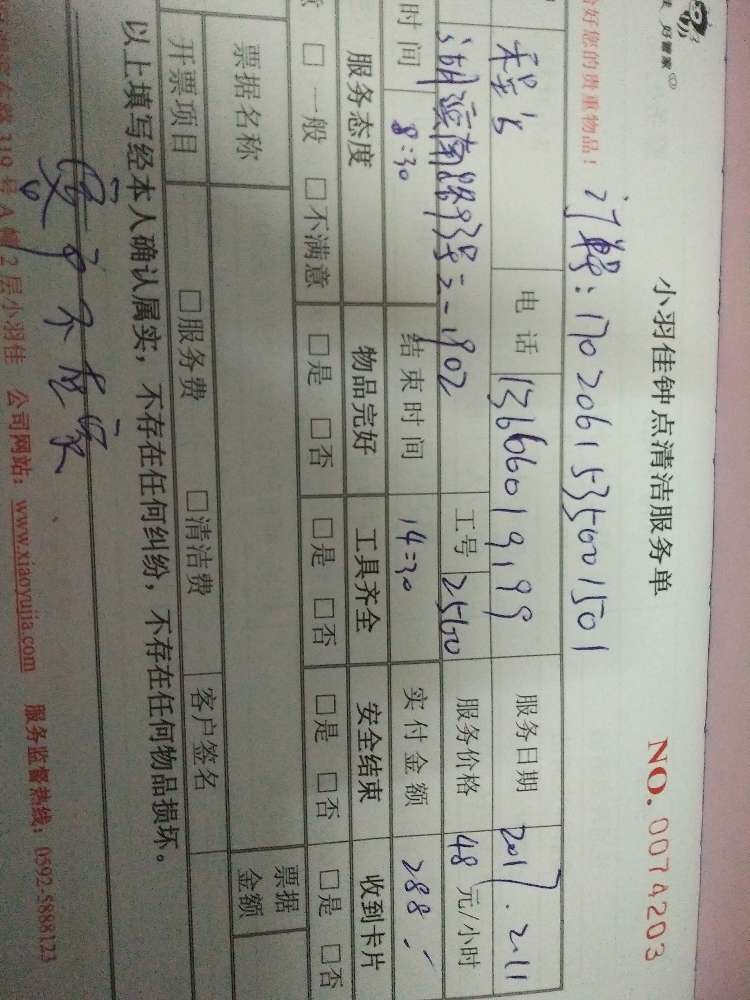 好管家
小羽佳钟点清洁服务单
NO. 0074203
好您的贵重物品！
订单号：17020615356001501
电话 13666019199 服务日期 2017.2.11
湖滨南路 号之一902 工号 2560 服务价格 48 元/小时
时间 8:30 结束时间 14:30 实付金额 288
服务态度 物品完好 工具齐全 安全结束 收到卡片
□ 一般 □不满意 □是 □否 □是 □否 □是 □否 □是 □否
票据名称 票据金额
开票项目 □服务费 □清洁费 客户签名
以上填写经本人确认属实，不存在任何纠纷，不存在任何物品损坏。
319号A幢2层小羽佳 公司网站：www.xiaoyujia.com 服务监督热线：0592-5888123